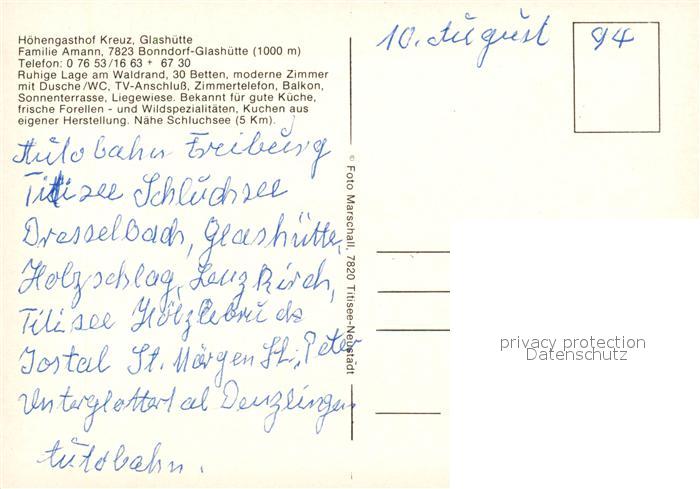 Höhengasthof Kreuz, Glashütte
Familie Amann, 7823 Bonndorf-Glashütte (1000 m)
Telefon: 0 76 53/16 63 + 67 30
Ruhige Lage am Waldrand, 30 Betten, moderne Zimmer
mit Dusche/WC, TV-Anschluß, Zimmertelefon, Balkon,
Sonnenterrasse, Liegewiese. Bekannt für gute Küche,
frische Forellen - und Wildspezialitäten, Kuchen aus
eigener Herstellung. Nähe Schluchsee (5 Km).
Autobahn Freiburg
Titisee Schluchsee
Dresselbach, Glashütte,
Holzschlag, Lenzkirch,
Titisee Hölzlebruck
Jostal St. Märgen St. Peter
Unterglottertal Denzlingen
Autobahn.
© Foto Marschall, 7820 Titisee-Neustadt
10. August 94
privacy protection
Datenschutz